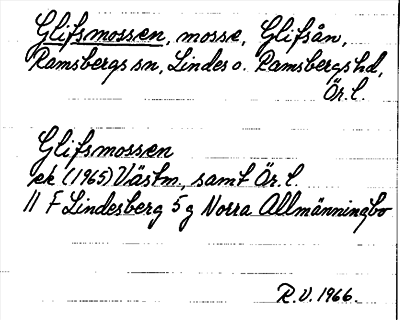 Glifsmossen, mosse, Glifsån,
Ramsbergs sn, Lindes o. Ramsbergs hd,
Ör. l.
Glifsmossen
ek (1965) Västm., samt Ör. l.
11 F Lindesberg 5 g Norra Allmänningbo
R.V. 1966.